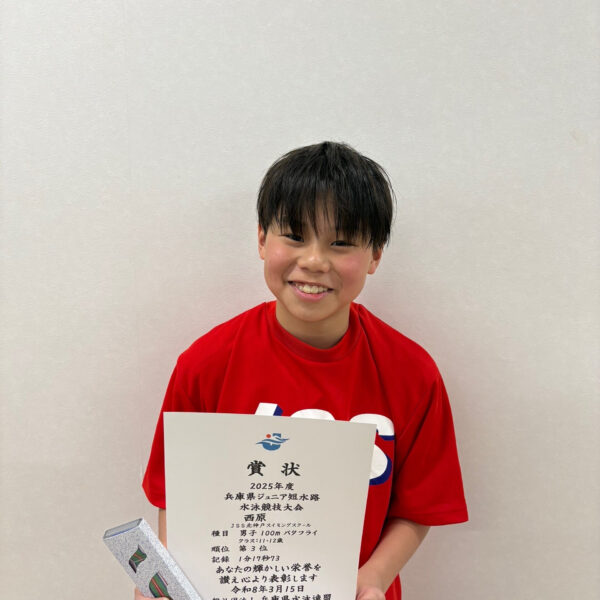 JSS
賞状
2025年度
兵庫県ジュニア短水路
水泳競技大会
西原
JSS北神戸スイミングスクール
種目 男子 100m バタフライ
クラス:11-12歳
順位 第 3 位
記録 1分17秒73
あなたの輝かしい栄誉を
讃え心より表彰します
令和8年3月15日
兵庫県水泳連盟